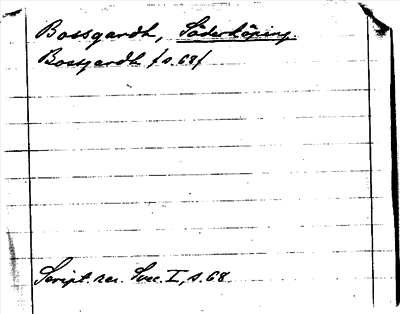 Bossgardh, Söderköping.
Bossgardh /s.68/
Script. rer. Svec. I, s. 68.